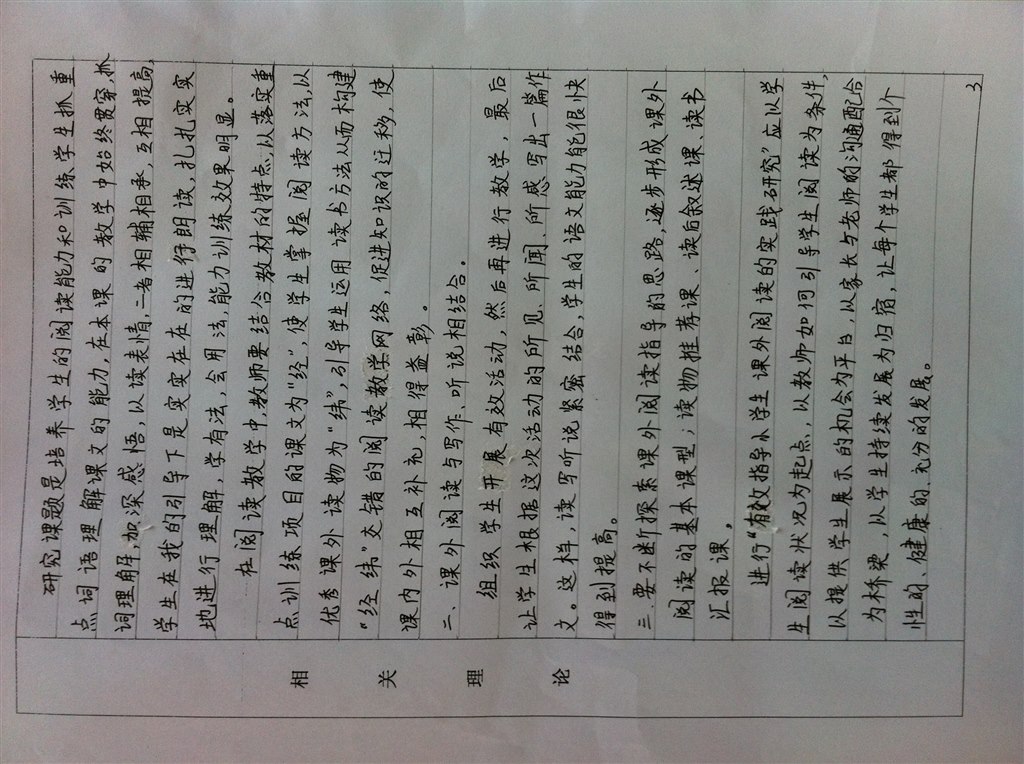 相关理论
研究课题是培养学生的阅读能力和训练学生抓重
点词语理解课文的能力,在本课的教学中始终贯穿,抓
词理解,加深感悟,以读表情,二者相辅相承,互相提高,
学生在我的引导下是实实在在的进行朗读,扎扎实实
地进行理解,学有法,会用法,能力训练效果明显。
在阅读教学中,教师要结合教材的特点,以落实重
点训练项目的课文为“经”,使学生掌握阅读方法,以
优秀课外读物为“纬”,引导学生运用读书方法从而构建
“经纬”交错的阅读教学网络,促进知识的迁移,使
课内外相互补充,相得益彰。
二、课外阅读与写作、听说相结合。
组织学生开展有效活动,然后再进行教学,最后
让学生根据这次活动的所见、所闻、所感写出一篇作
文。这样,读写听说紧密结合,学生的语文能力能很快
得到提高。
三、要不断探索课外阅读指导的思路,逐步形成课外
阅读的基本课型;读物推荐课、读后叙述课、读书
汇报课,
进行“有效指导小学生课外阅读的实践研究”应以学
生阅读状况为起点,以教师如何引导学生阅读为条件,
以提供学生展示的机会为平台,以家长与老师的沟通配合
为桥梁,以学生持续发展为归宿,让每个学生都得到个
性的、健康的、充分的发展。
3